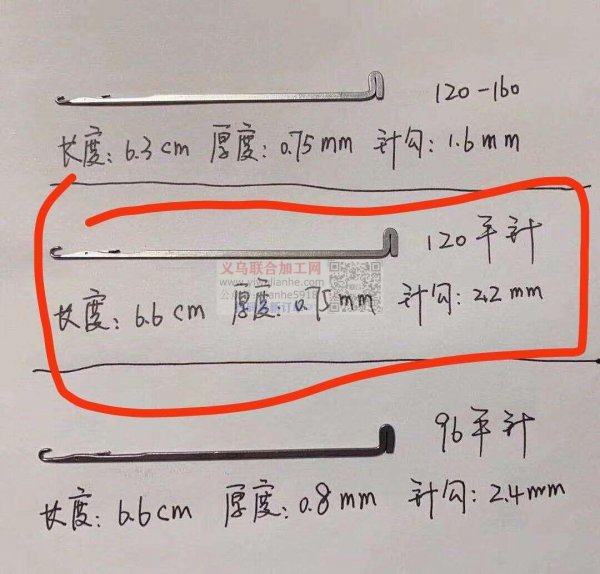 120-160
长度: 6.3cm 厚度: 0.75mm 针勾: 1.6mm
120平针
义乌联合加工网
长度: 6.6cm 厚度: 0.75mm 针勾: 2.2mm
96平针
长度: 6.6cm 厚度: 0.8mm 针勾: 2.4mm